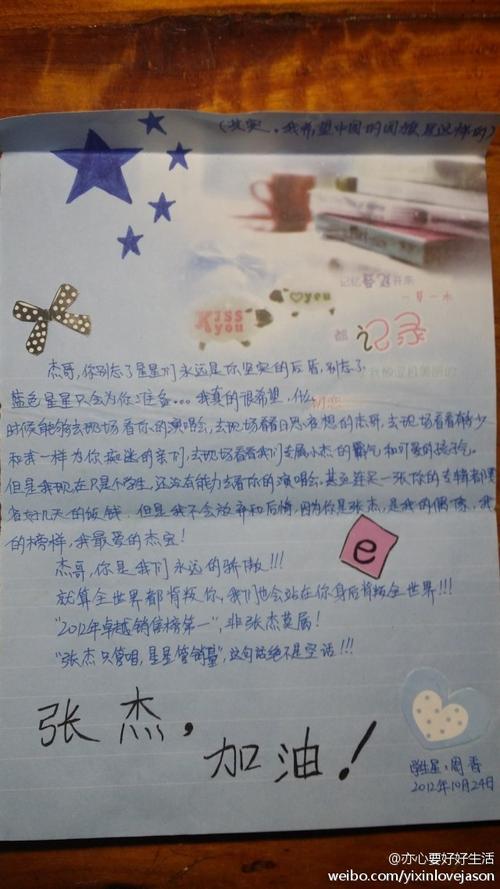 (其实，我希望中国的国旗是这样的)
Kiss you
you
记忆
一草一木
都
记录
杰哥，你别忘了星星们永远是你坚实的后盾，别忘了
蓝色星星只会为你准备。。。我真的很希望，什么
时候能够去现场看你的演唱会，去现场看看日思夜想的杰哥，去现场看看有多少
和我一样为你痴迷的亲们，去现场看看我们专属小杰的霸气和可爱的孩子气。
但是我现在只是个学生，还没有能力去看你的演唱会，甚至连买一张你的专辑都要
省好几天的饭钱。但是我不会放弃和后悔，因为你是张杰，是我的偶像，我
的榜样，我最爱的杰宝！
e
杰哥，你是我们永远的骄傲!!!
就算全世界都背叛你，我们也会站在你身后背叛全世界!!!
"2012年卓越销售榜第一"，非张杰莫属！
"张杰只管唱，星星管销量"，这句话绝不是空话!!!
张杰，
加油！
学生星：周香
2012年10月24日
@亦心要好好生活
weibo.com/yixinlovejason